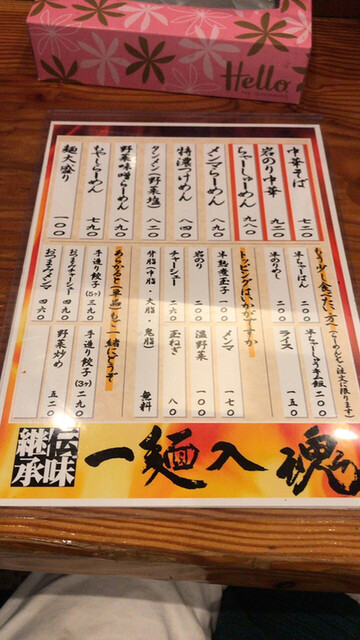 Hello
中華そば 七二〇
岩のり中華 九二〇
ちゃーしゅーめん 九八〇
メンマらーめん 八九〇
特濃つけめん 八四〇
タンメン(野菜塩) 八九〇
野菜味噌らーめん 八九〇
もやしらーめん 七九〇
麺大盛り 一〇〇
もう少し食べたい方へ(らーめんをご注文に限ります)
半らーはん 二〇〇
半ちゃーしゅー手飯 二〇〇
半のりめし 二〇〇
ライス 一五〇
トッピングはいかがですか
半熟煮玉子 一〇〇
メンマ 一七〇
岩のり 二〇〇
温野菜 一〇〇
チャーシュー 二六〇
玉ねぎ 八〇
背脂(中脂・大脂・鬼脂) 無料
あらかると(単品)もご一緒にどうぞ
手造り餃子(5ヶ) 三九〇
手造り餃子(3ヶ) 二九〇
おつまみチャーシュー 四九〇
野菜炒め 五二〇
おつまみメンマ 四六〇
伝味継承
一麺入魂